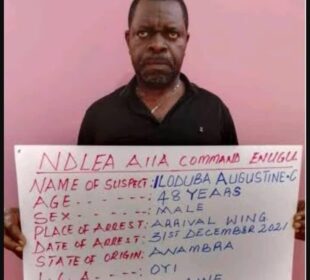 NDLEA AIIA COMMAND ENUGU
NAME OF SUSPECT: ILODUBA AUGUSTINE-C
AGE - - - - - - : 48 YEARS
SEX - - - - - - : MALE
PLACE OF ARREST: ARRIVAL WING
DATE OF ARREST: 31ST DECEMBER 2021
STATE OF ORIGIN: ANAMBRA
L.G.A - - - - : OYI